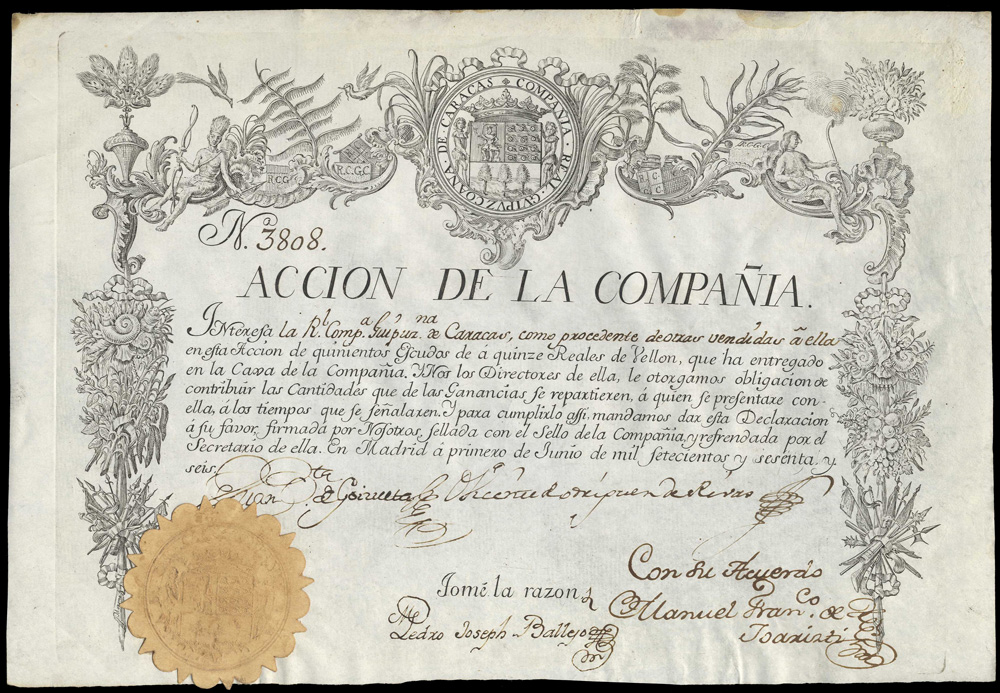 COMPAÑIA · REAL · GVIPVZCOANA · DE CARACAS
R.C.G.
R.C.G.C
R.
C.
G.
N.ª 3808.
ACCION DE LA COMPAÑIA.
INteresa la R.l Comp.a Guipuz.na de Caracas, como procedente de otras vendidas â ella
en esta Accion de quinientos Escudos de á quinze Reales de Vellon, que ha entregado
en la Caxa de la Compañia. Y Nos los Directores de ella, le otorgamos obligacion de
contribuir las Cantidades que de las Ganancias se repartieren, á quien se presentare con-
ella, á los tiempos que se señalaren. Y para cumplirlo assi, mandamos dar esta Declaracion
á su favor, firmada por Nosotros, sellada con el Sello de la Compañia, y refrendada por el
Secretario de ella. En Madrid á primero de Junio de mil setecientos y sesenta, y
seis.
Juan B.ta de Goizueta Vicente Rodriguez de Rivas
Con su Acuerdo
Tomé la razon
Manuel Fran.co de
Pedro Joseph Ballejo